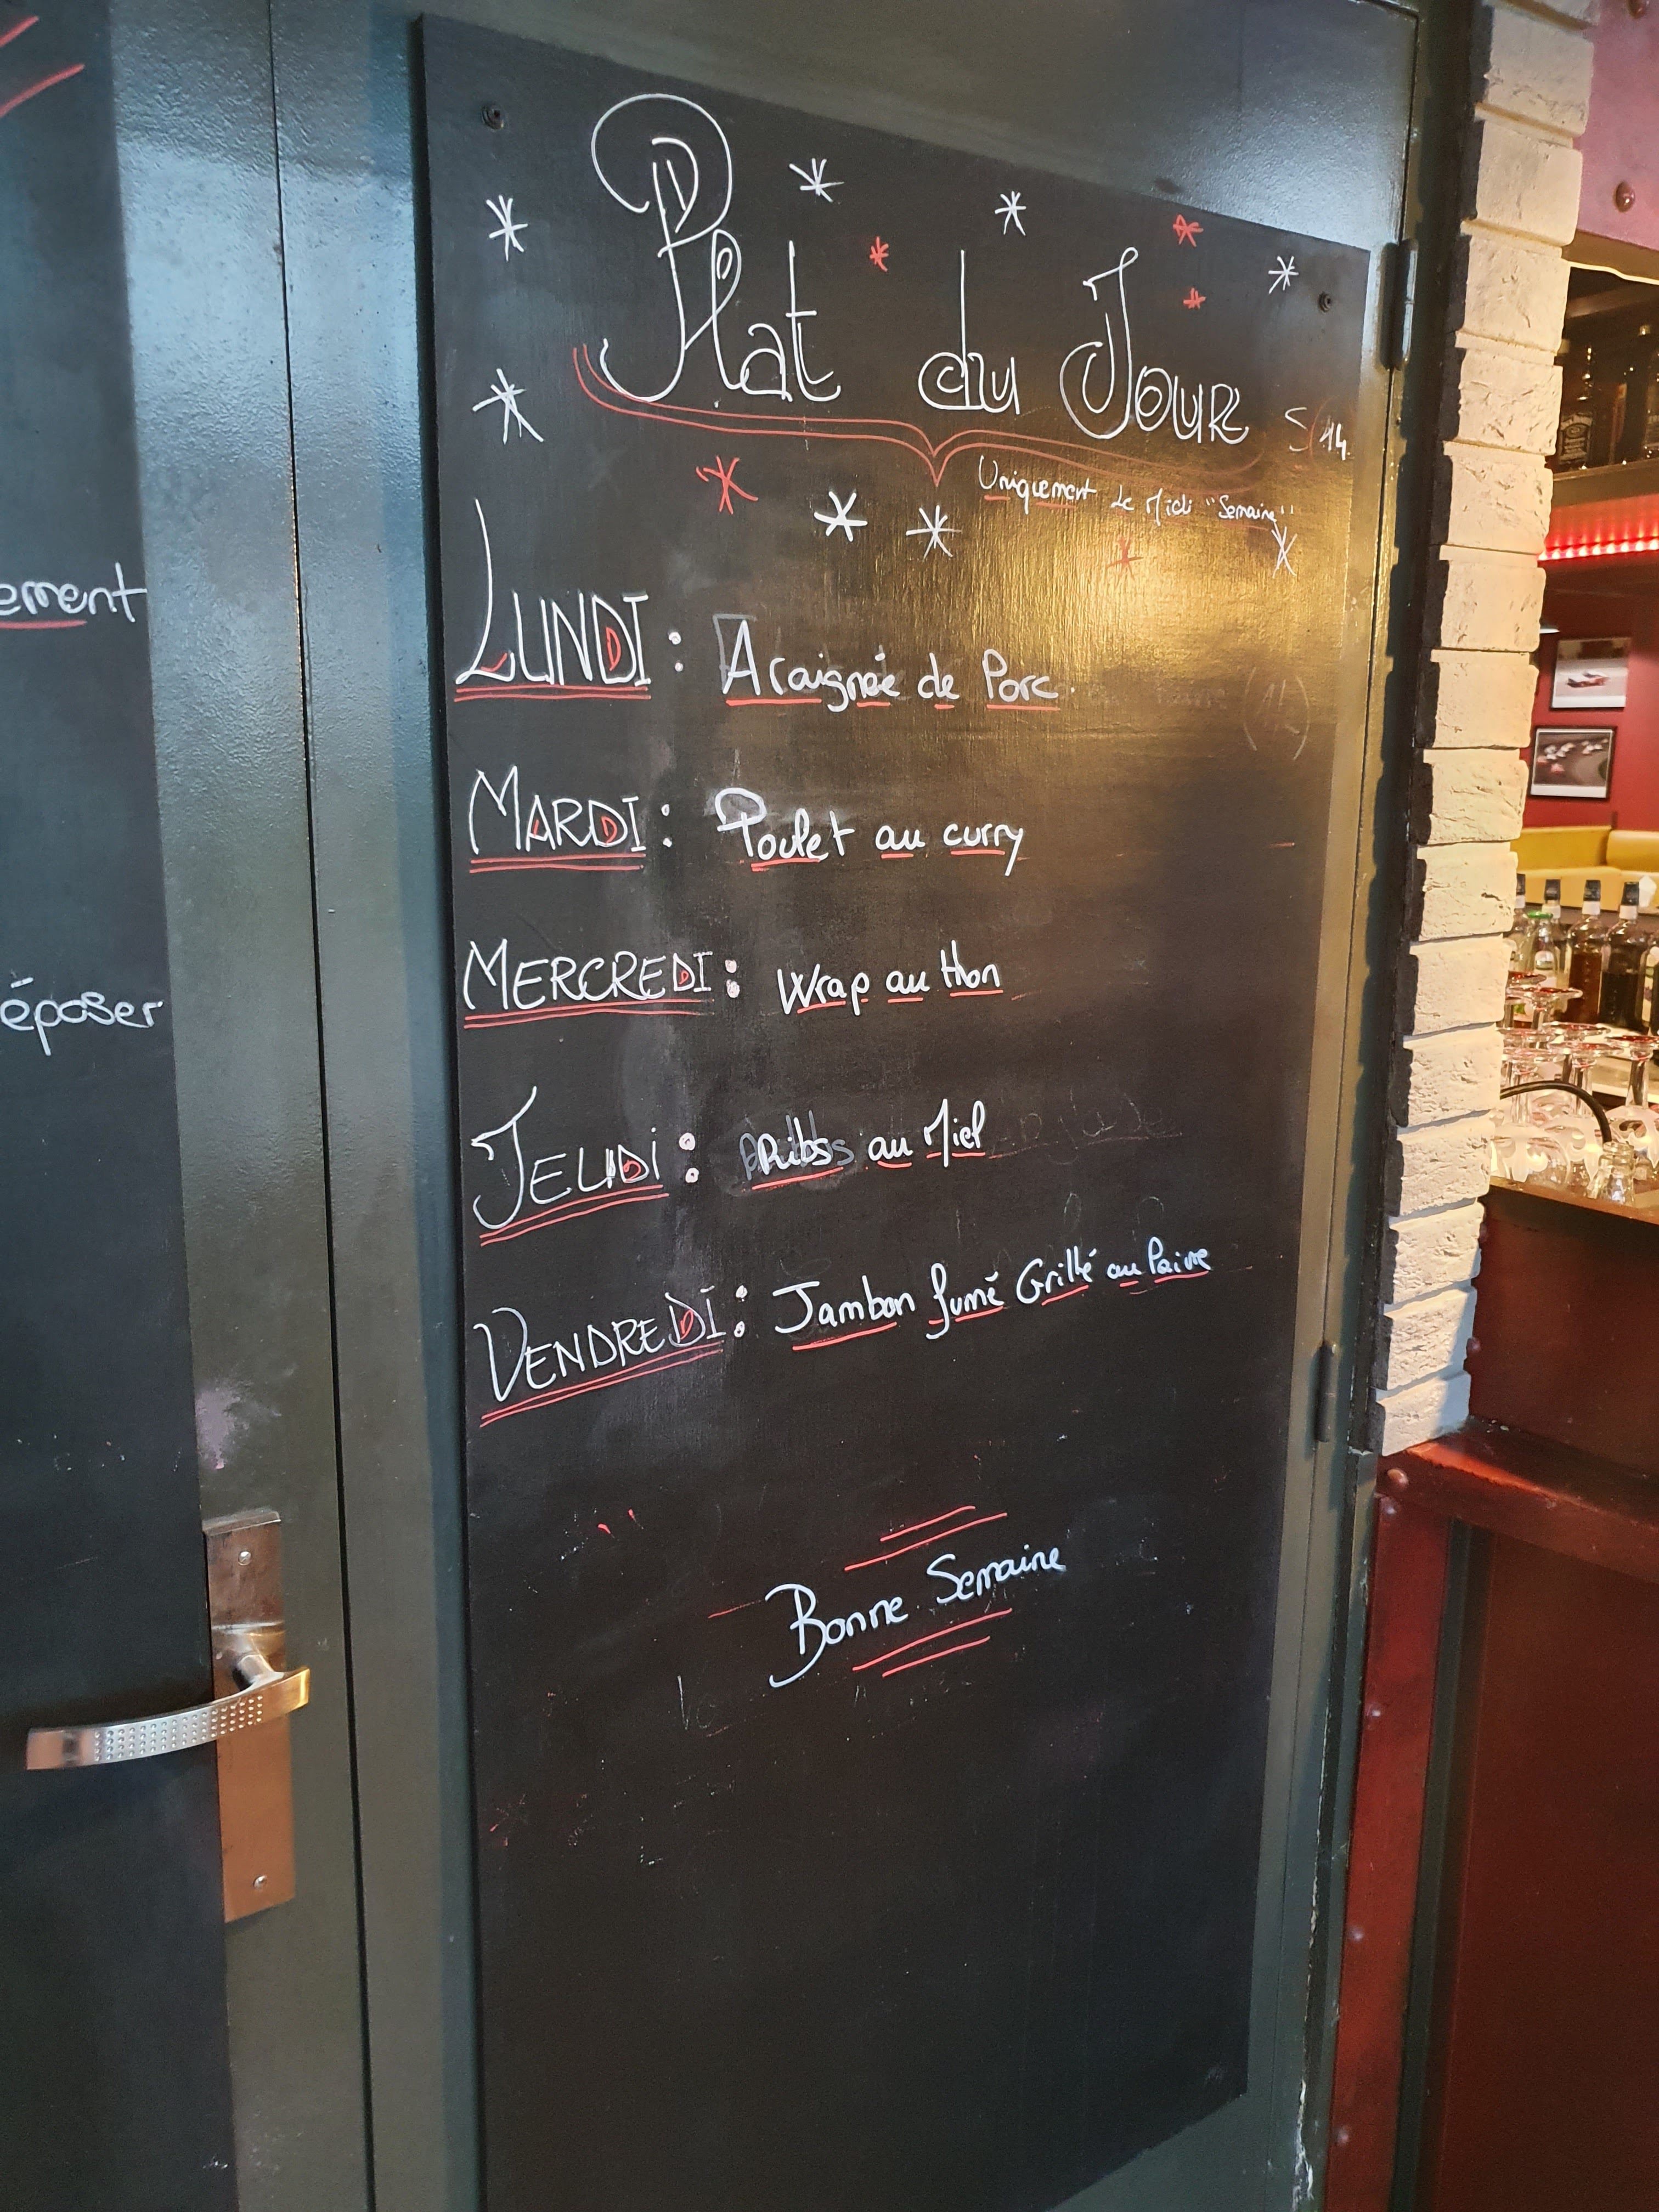 ement
époser
Plat du Jour S14
Uniquement Le Midi "Semaine"
LUNDI : Araignée de Porc.
MARDI : Poulet au curry
MERCREDI : Wrap au thon
JEUDi : Ribs au Miel
VENDREDi : Jambon fumé Grillé au Poivre
Bonne Semaine